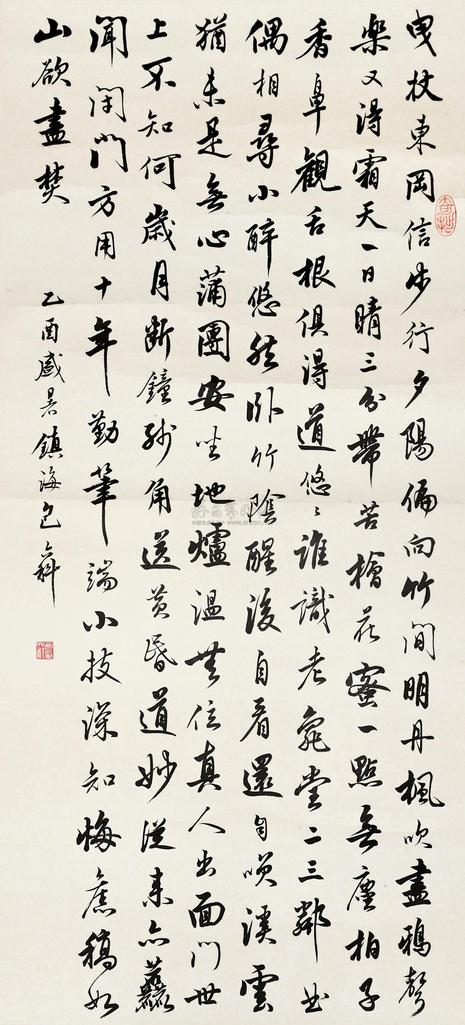 曳杖東岡信步行夕陽偏向竹間明丹楓吹盡鴉聲
樂又得霜天一日晴三分帶苦檜花蜜一點無塵柏子
香鼻觀舌根俱得道悠々誰識老龜堂二三鄰曲
偶相尋小醉悠然卧竹陰醒後自看還自咲溪雲
猶未是無心蒲團安坐地爐溫無位真人出面門世
上不知何歲月斷鐘殘角送黃昏道妙從來亦麤
聞閉門方用十年勤筆端小技深知悔舊稿如
山欲盡焚
乙酉盛暑鎮海包